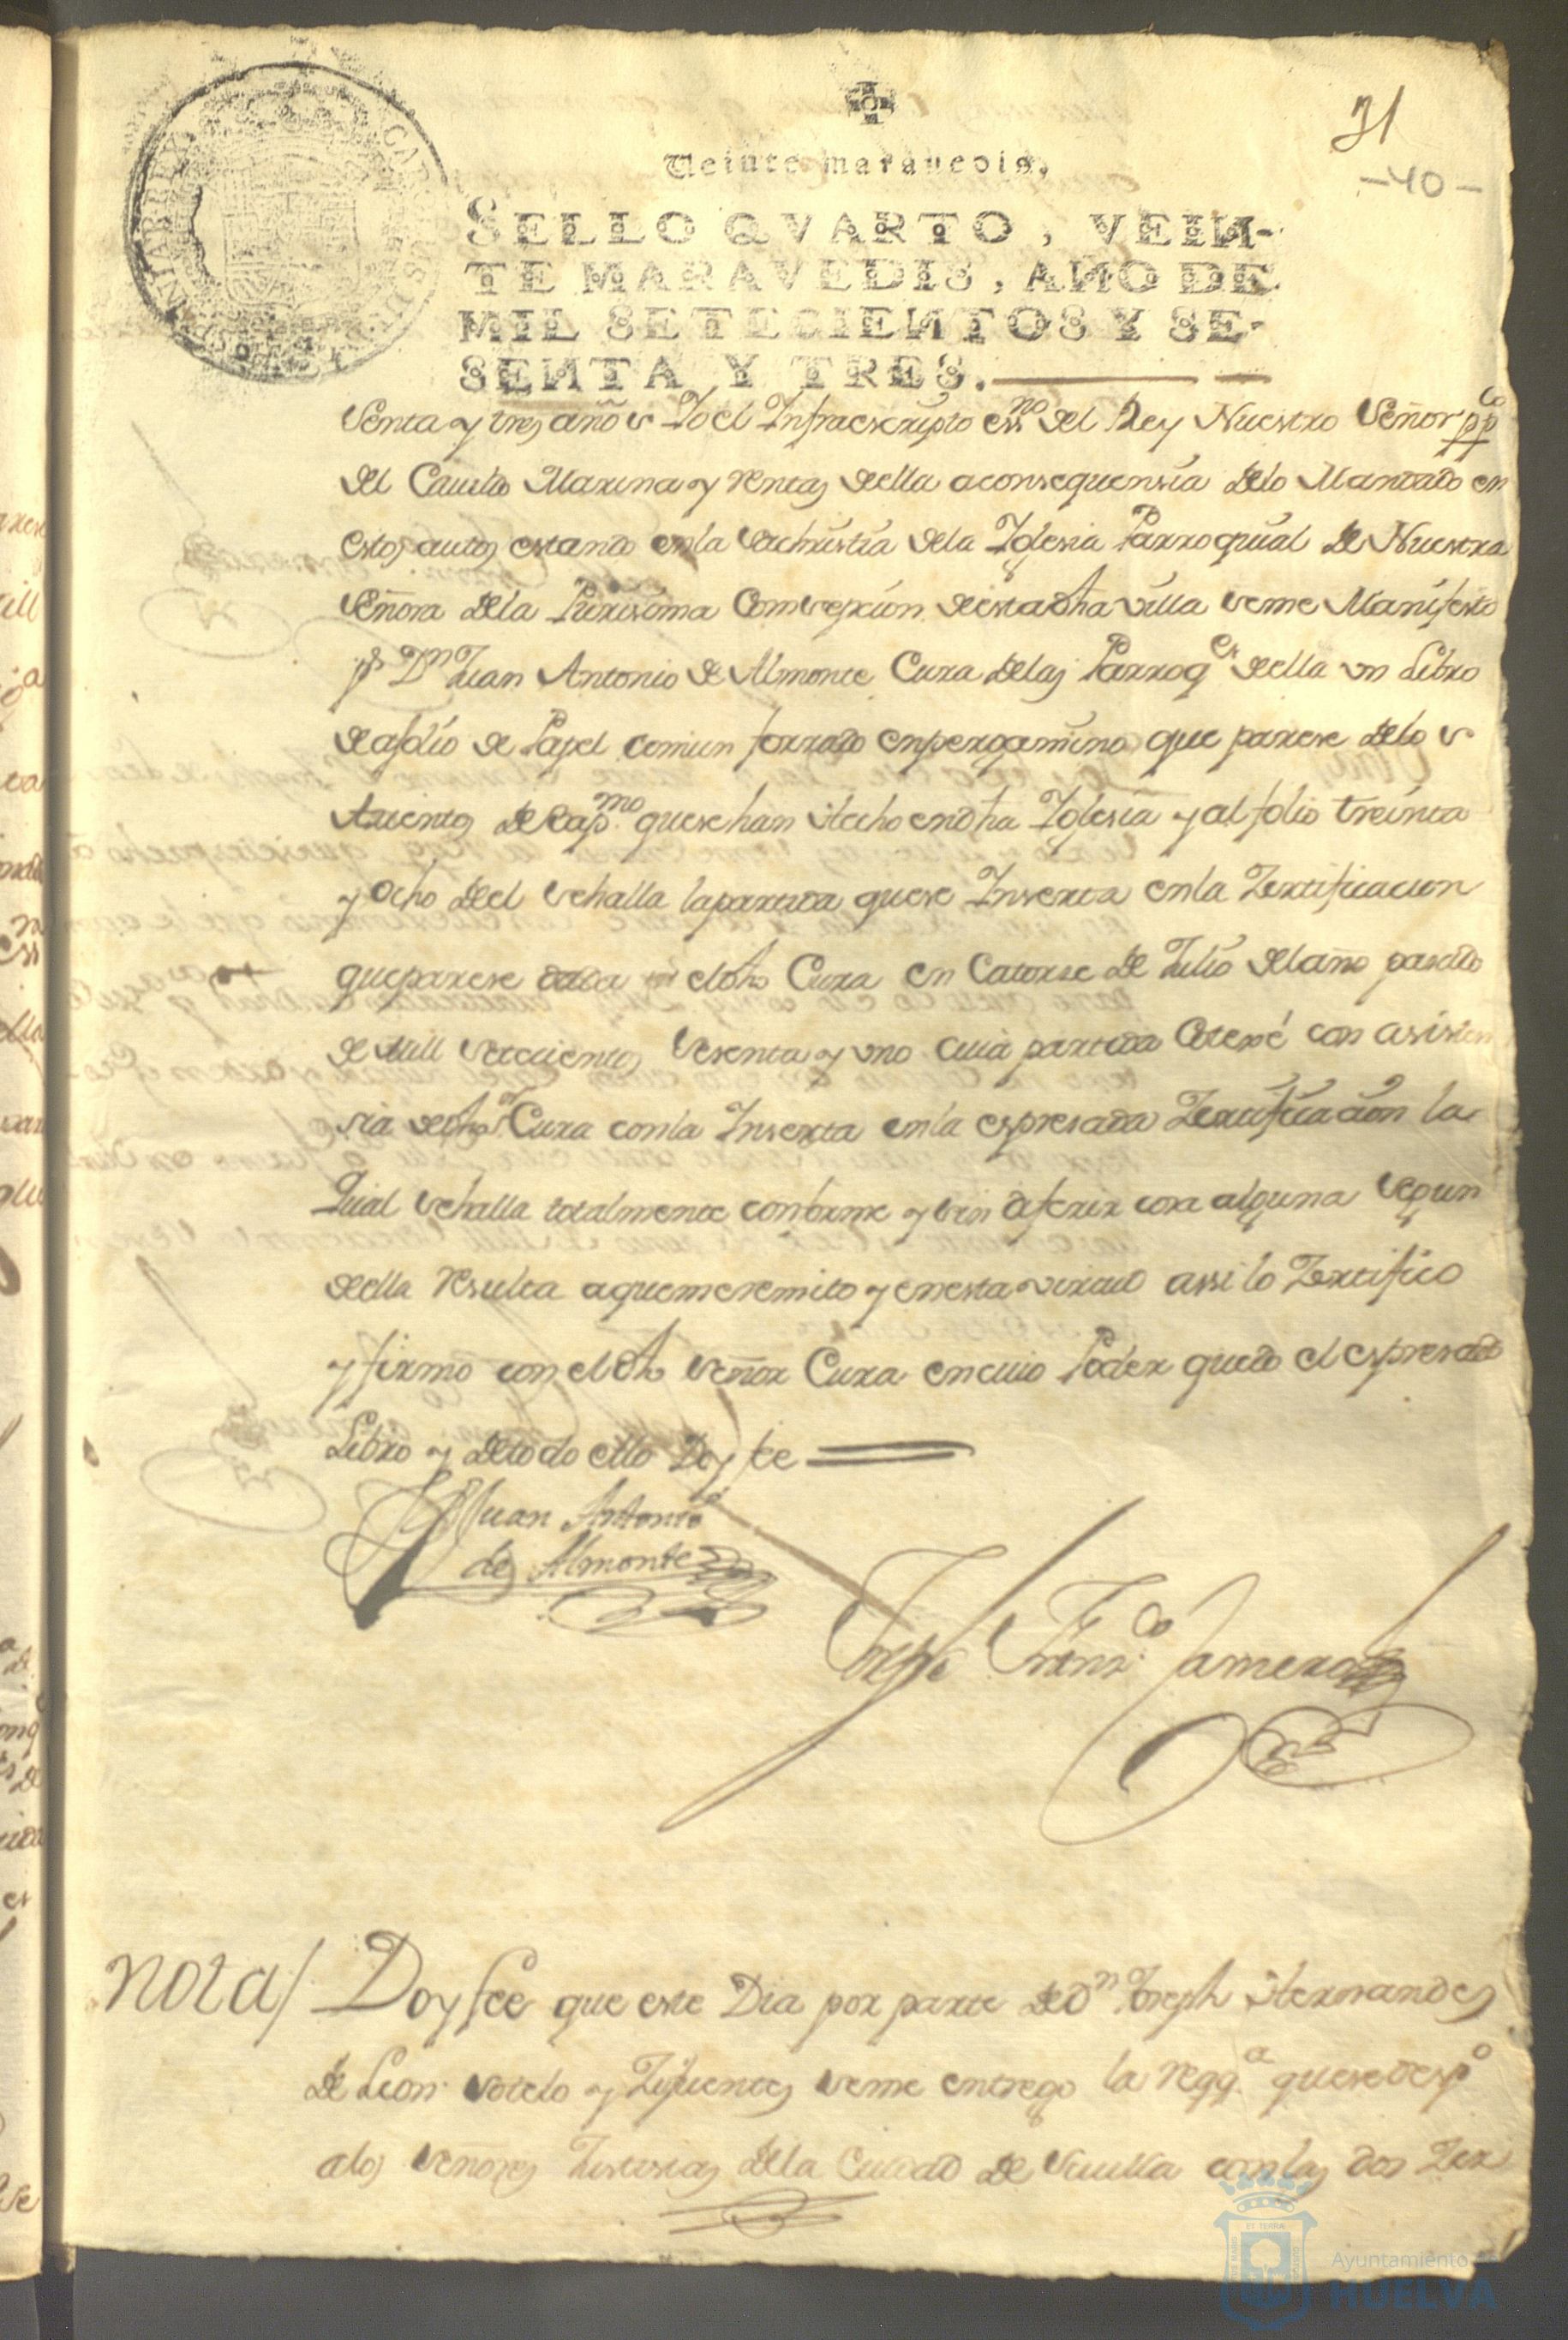 31
-40-
Veinte maravedis.
SELLO QVARTO, VEIN-
TE MARAVEDIS, AÑO DE
MIL SETECIENTOS Y SE-
SENTA Y TRES.
Senta y tres años Yo el Infraescripto essno del Rey Nuestro Señor ppco
del Cauildo Marina y rentas della aconsequensia delo Mandado en
estos autos estando enla Sachristia dela Iglesia Parroquial de Nuestra
Señora dela Purissima Comsepsion deestadha villa seme Manifesto
pr Dn Juan Antonio de Almonte Cura delas Parroqes della vn Libro
deafolio de Papel comun forrado enpergamino que parese delos
Asientos de Bapmo quesehan Hecho endha Iglesia y al folio treinta
y ocho del sehalla lapartida quese Inserta enla Zertificacion
queparese dada el dho Cura en Catorse de Julio delaño pasado
de Mill setecientos sesenta y vno cuia partida Cotexé con asisten
sia dedho Sr Cura conla Inserta enla espresada Zertificacion la
Qual sehalla totalmente conforme y sin diferir cosa alguna segun
della resulta aquemeremito y enesta virtud assi lo Zertifico
y firmo con eldho Señor Cura encuio Poder quedo el espresado
Libro y detodo ello Doy fee
Juan Antonio
de Almonte
Joseph Franco
Nota/ Doy fee que este Dia por parte de Dn Joseph Hernandes
de Leon Sotelo y Zifuentes seme entrego la reqqa quesedespo
alos Señores Justisias dela Ciudad de Seuilla conlas dos Zer
Ayuntamiento de
HUELVA